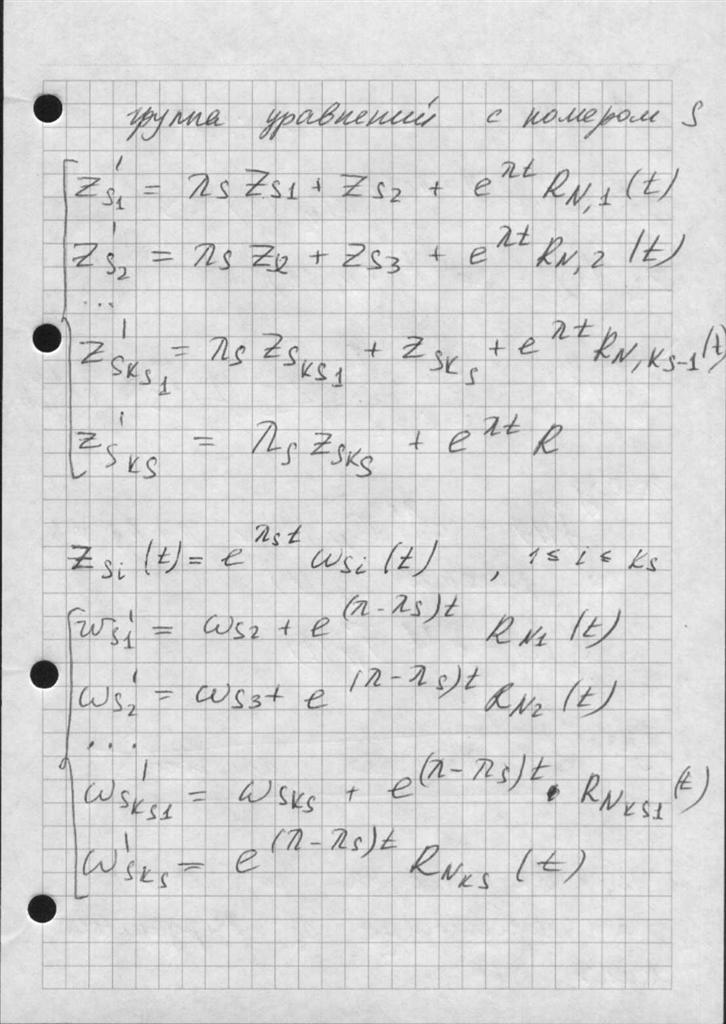 группа уравнений с номером s
z_{s1}' = λ_s z_{s1} + z_{s2} + e^{λt} R_{N,1}(t)
z_{s2}' = λ_s z_2 + z_{s3} + e^{λt} R_{N,2}(t)
...
z_{sks1}' = λ_s z_{sks1} + z_{sks} + e^{λt} R_{N,ks-1}(t)
z_{sks}' = λ_s z_{sks} + e^{λt} R
z_{si}(t) = e^{λ_s t} ω_{si}(t) , 1 ≤ i ≤ ks
ω_{s1}' = ω_{s2} + e^{(λ-λ_s)t} R_{N1}(t)
ω_{s2}' = ω_{s3} + e^{(λ-λ_s)t} R_{N2}(t)
...
ω_{sks1}' = ω_{sks} + e^{(λ-λ_s)t} · R_{Nks1}(t)
ω_{sks}' = e^{(λ-λ_s)t} R_{Nks}(t)